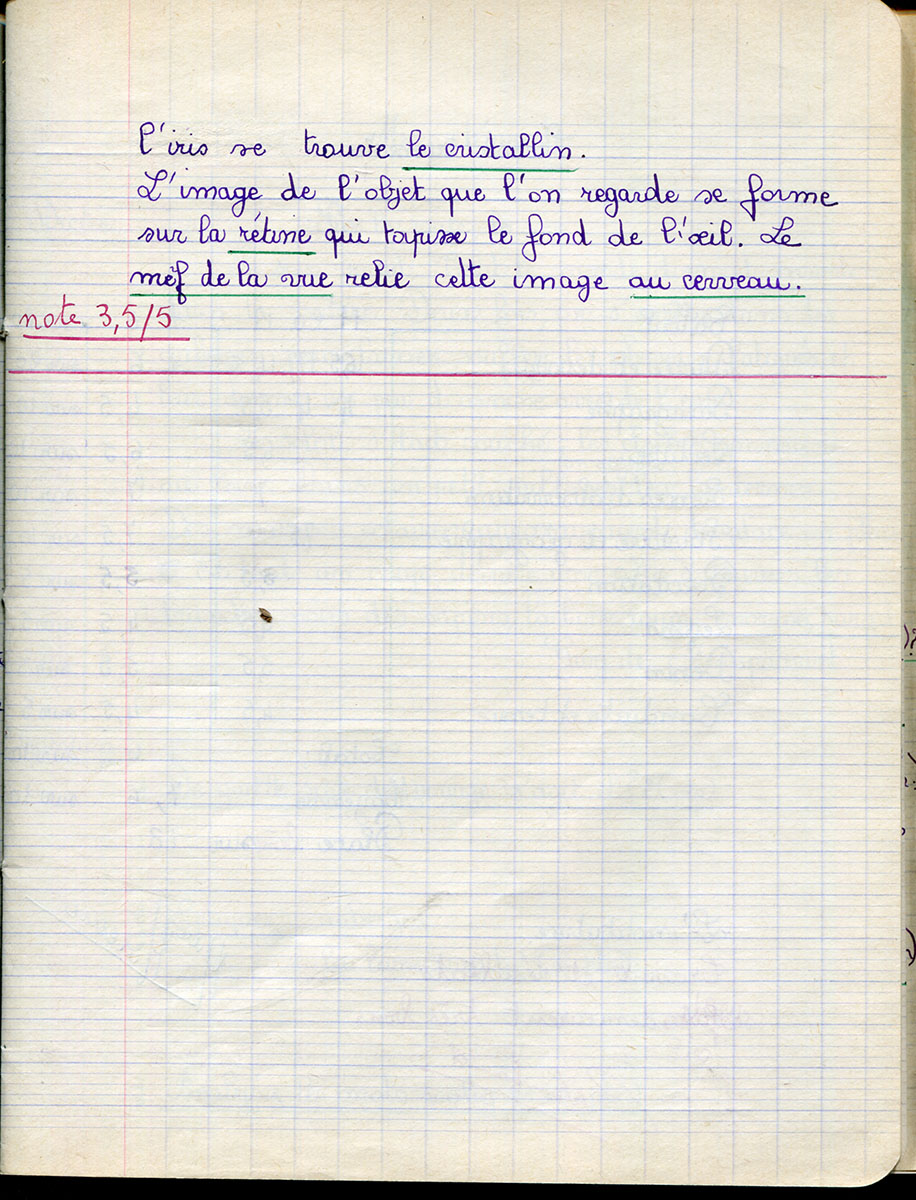 l'iris se trouve le cristallin.
L'image de l'objet que l'on regarde se forme
sur la rétine qui tapisse le fond de l'œil. Le
nerf de la vue relie cette image au cerveau.
note 3,5/5